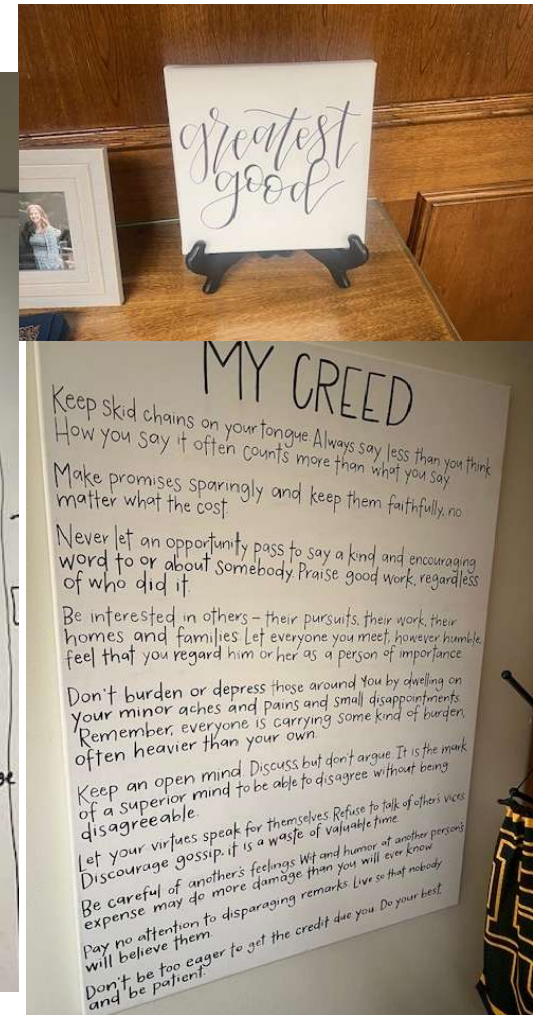 greatest
good
MY CREED
Keep skid chains on your tongue. Always say less than you think.
How you say it often counts more than what you say.
Make promises sparingly and keep them faithfully, no
matter what the cost.
Never let an opportunity pass to say a kind and encouraging
word to or about somebody. Praise good work, regardless
of who did it.
Be interested in others – their pursuits, their work, their
homes and families. Let everyone you meet, however humble,
feel that you regard him or her as a person of importance
Don't burden or depress those around you by dwelling on
your minor aches and pains and small disappointments.
Remember, everyone is carrying some kind of burden,
often heavier than your own.
Keep an open mind. Discuss, but don't argue. It is the mark
of a superior mind to be able to disagree without being
disagreeable.
Let your virtues speak for themselves. Refuse to talk of other's vices
Discourage gossip, it is a waste of valuable time.
Be careful of another's feelings. Wit and humor at another person's
expense may do more damage than you will ever know
Pay no attention to disparaging remarks. Live so that nobody
will believe them.
Don't be too eager to get the credit due you. Do your best
and be patient.